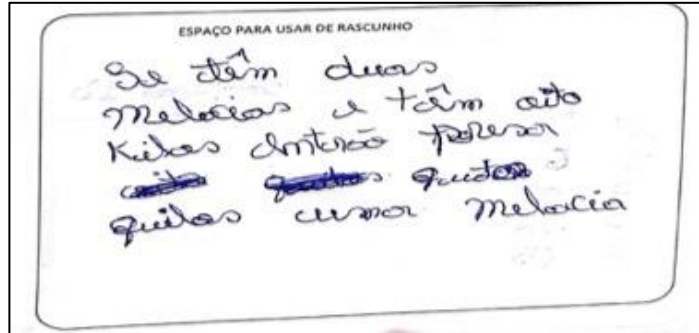 ESPAÇO PARA USAR DE RASCUNHO
Se têm duas
melacias e têm oito
Kilos Enterão
quilos cumor melacia